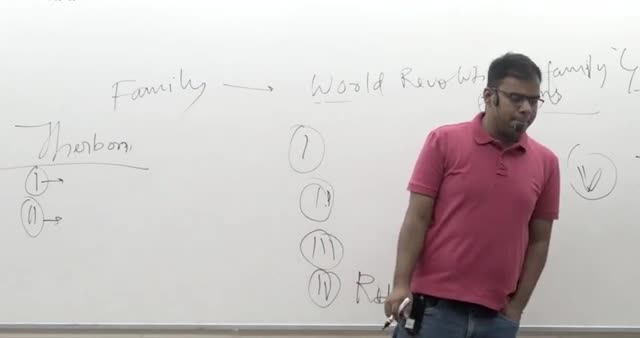 Family → World Revolut family"
Therborn
I →
II →
I
II
III
IV R
V